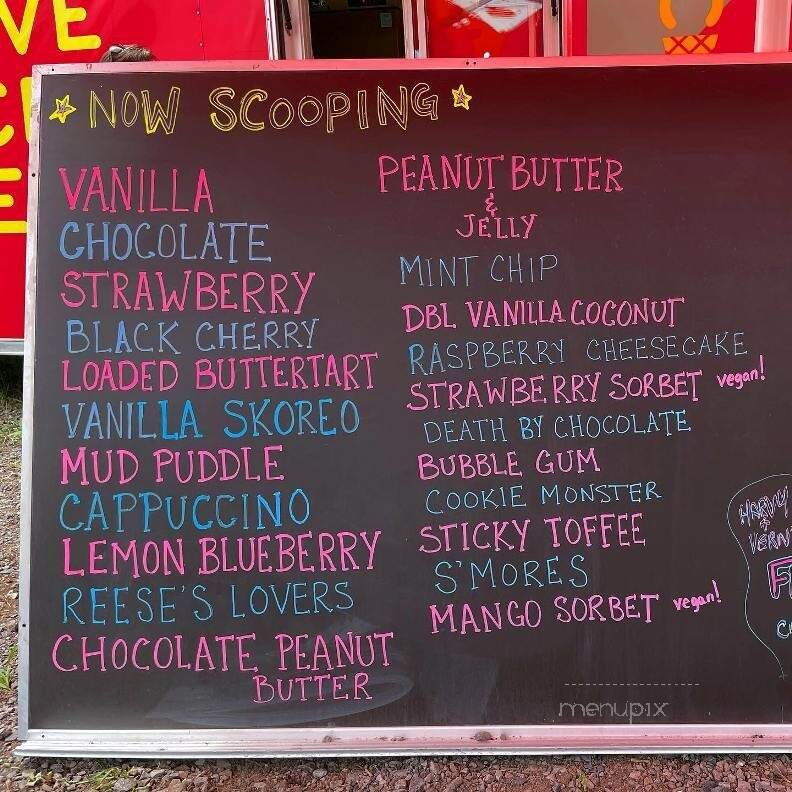 VE
E
NOW SCOOPING
VANILLA
CHOCOLATE
STRAWBERRY
BLACK CHERRY
LOADED BUTTERTART
VANILLA SKOREO
MUD PUDDLE
CAPPUCCINO
LEMON BLUEBERRY
REESE'S LOVERS
CHOCOLATE PEANUT
BUTTER
PEANUT BUTTER
&
JELLY
MINT CHIP
DBL VANILLA COCONUT
RASPBERRY CHEESECAKE
STRAWBERRY SORBET vegan!
DEATH BY CHOCOLATE
BUBBLE GUM
COOKIE MONSTER
STICKY TOFFEE
S'MORES
MANGO SORBET vegan!
menupix